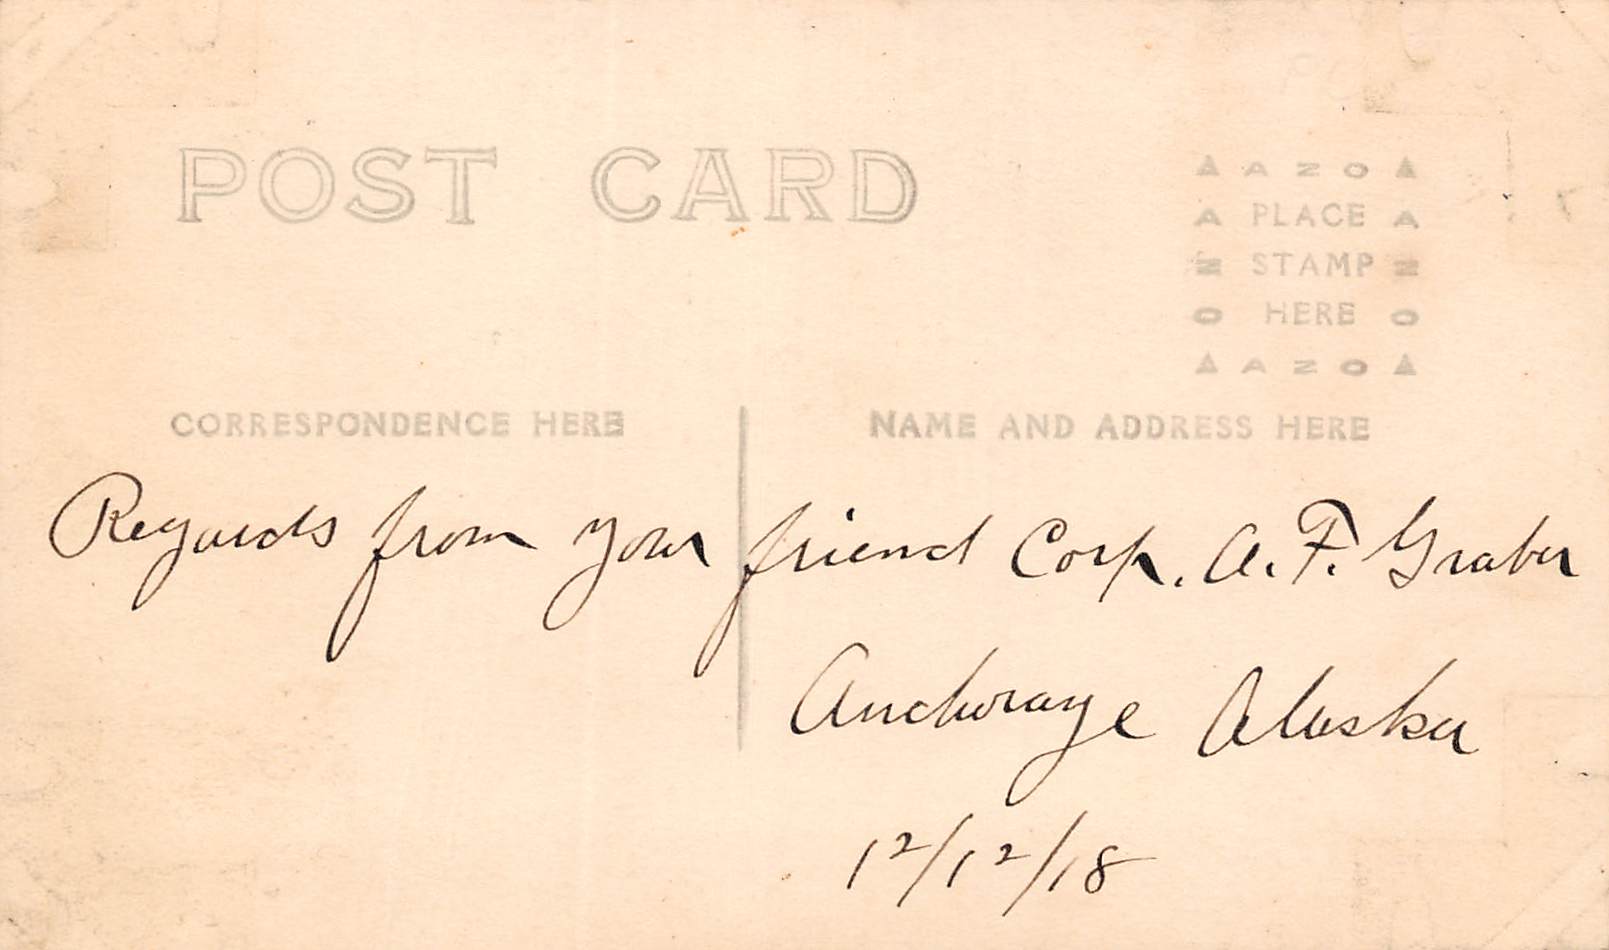 POST CARD
▲ A Z O ▲
A PLACE A
Z STAMP Z
O HERE O
▲ A Z O ▲
CORRESPONDENCE HERE
NAME AND ADDRESS HERE
Regards from your friend Corp. A. F. Graber
Anchorage Alaska
12/12/18